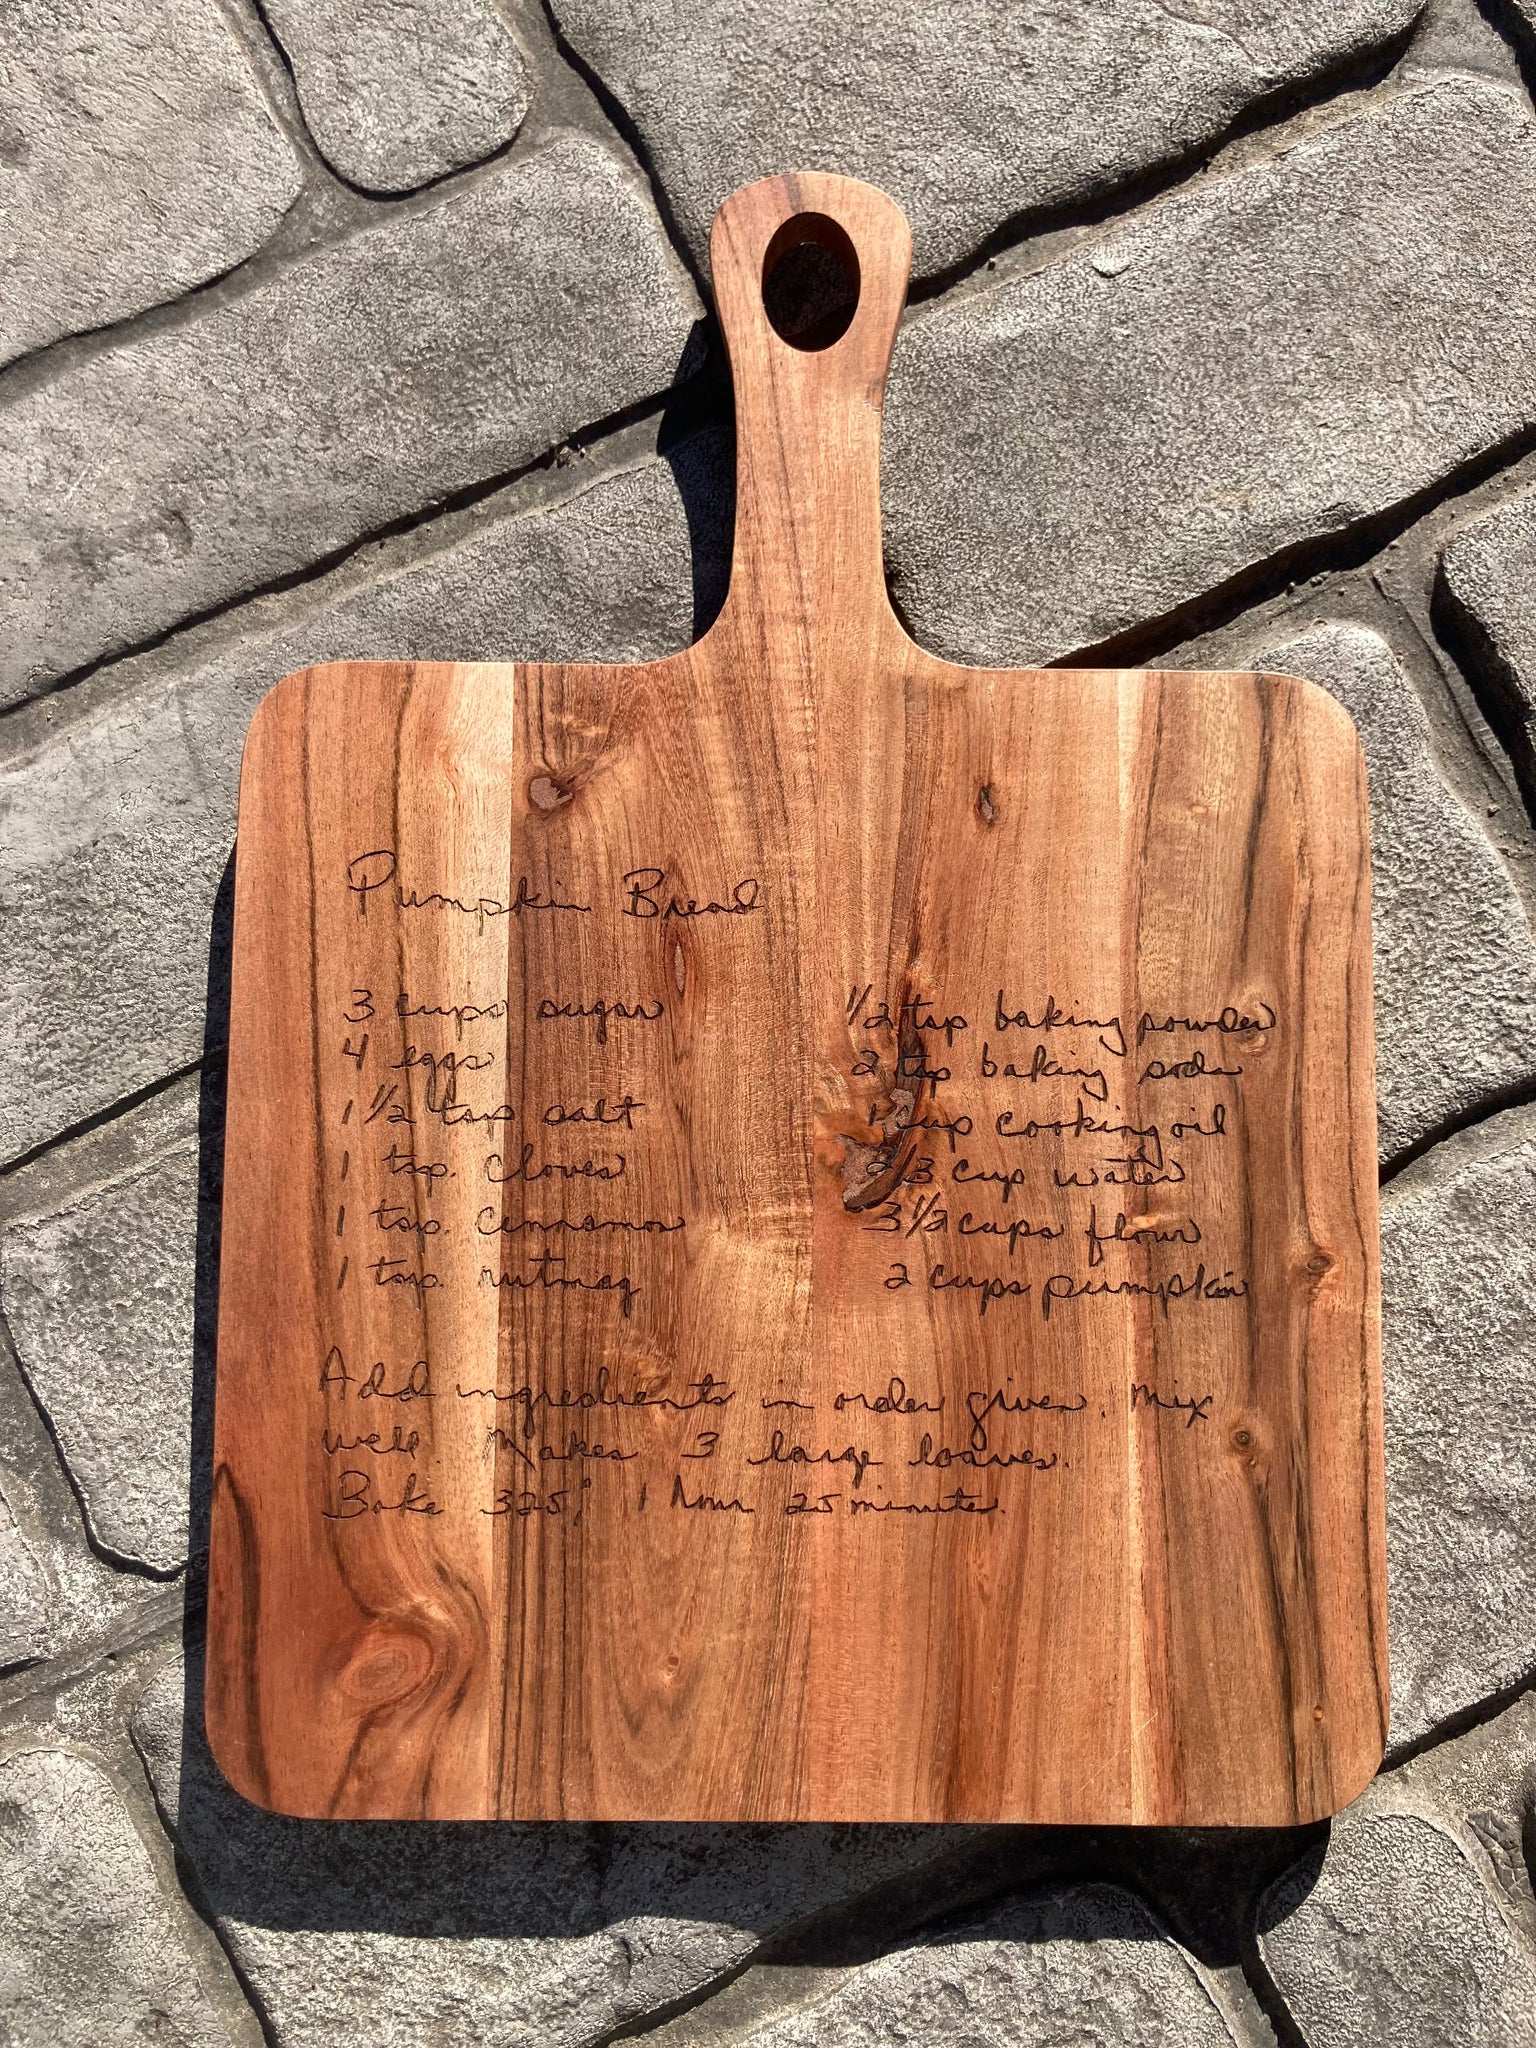 Pumpkin Bread
3 cups sugar
4 eggs
1 1/2 tsp salt
1 tsp. cloves
1 tsp. cinnamon
1 tsp. nutmeg
1/2 tsp baking powder
2 tsp baking soda
1 cup cooking oil
2/3 cup water
3 1/2 cups flour
2 cups pumpkin
Add ingredients in order given. Mix
well. Makes 3 large loaves.
Bake 325°, 1 hour 25 minutes.